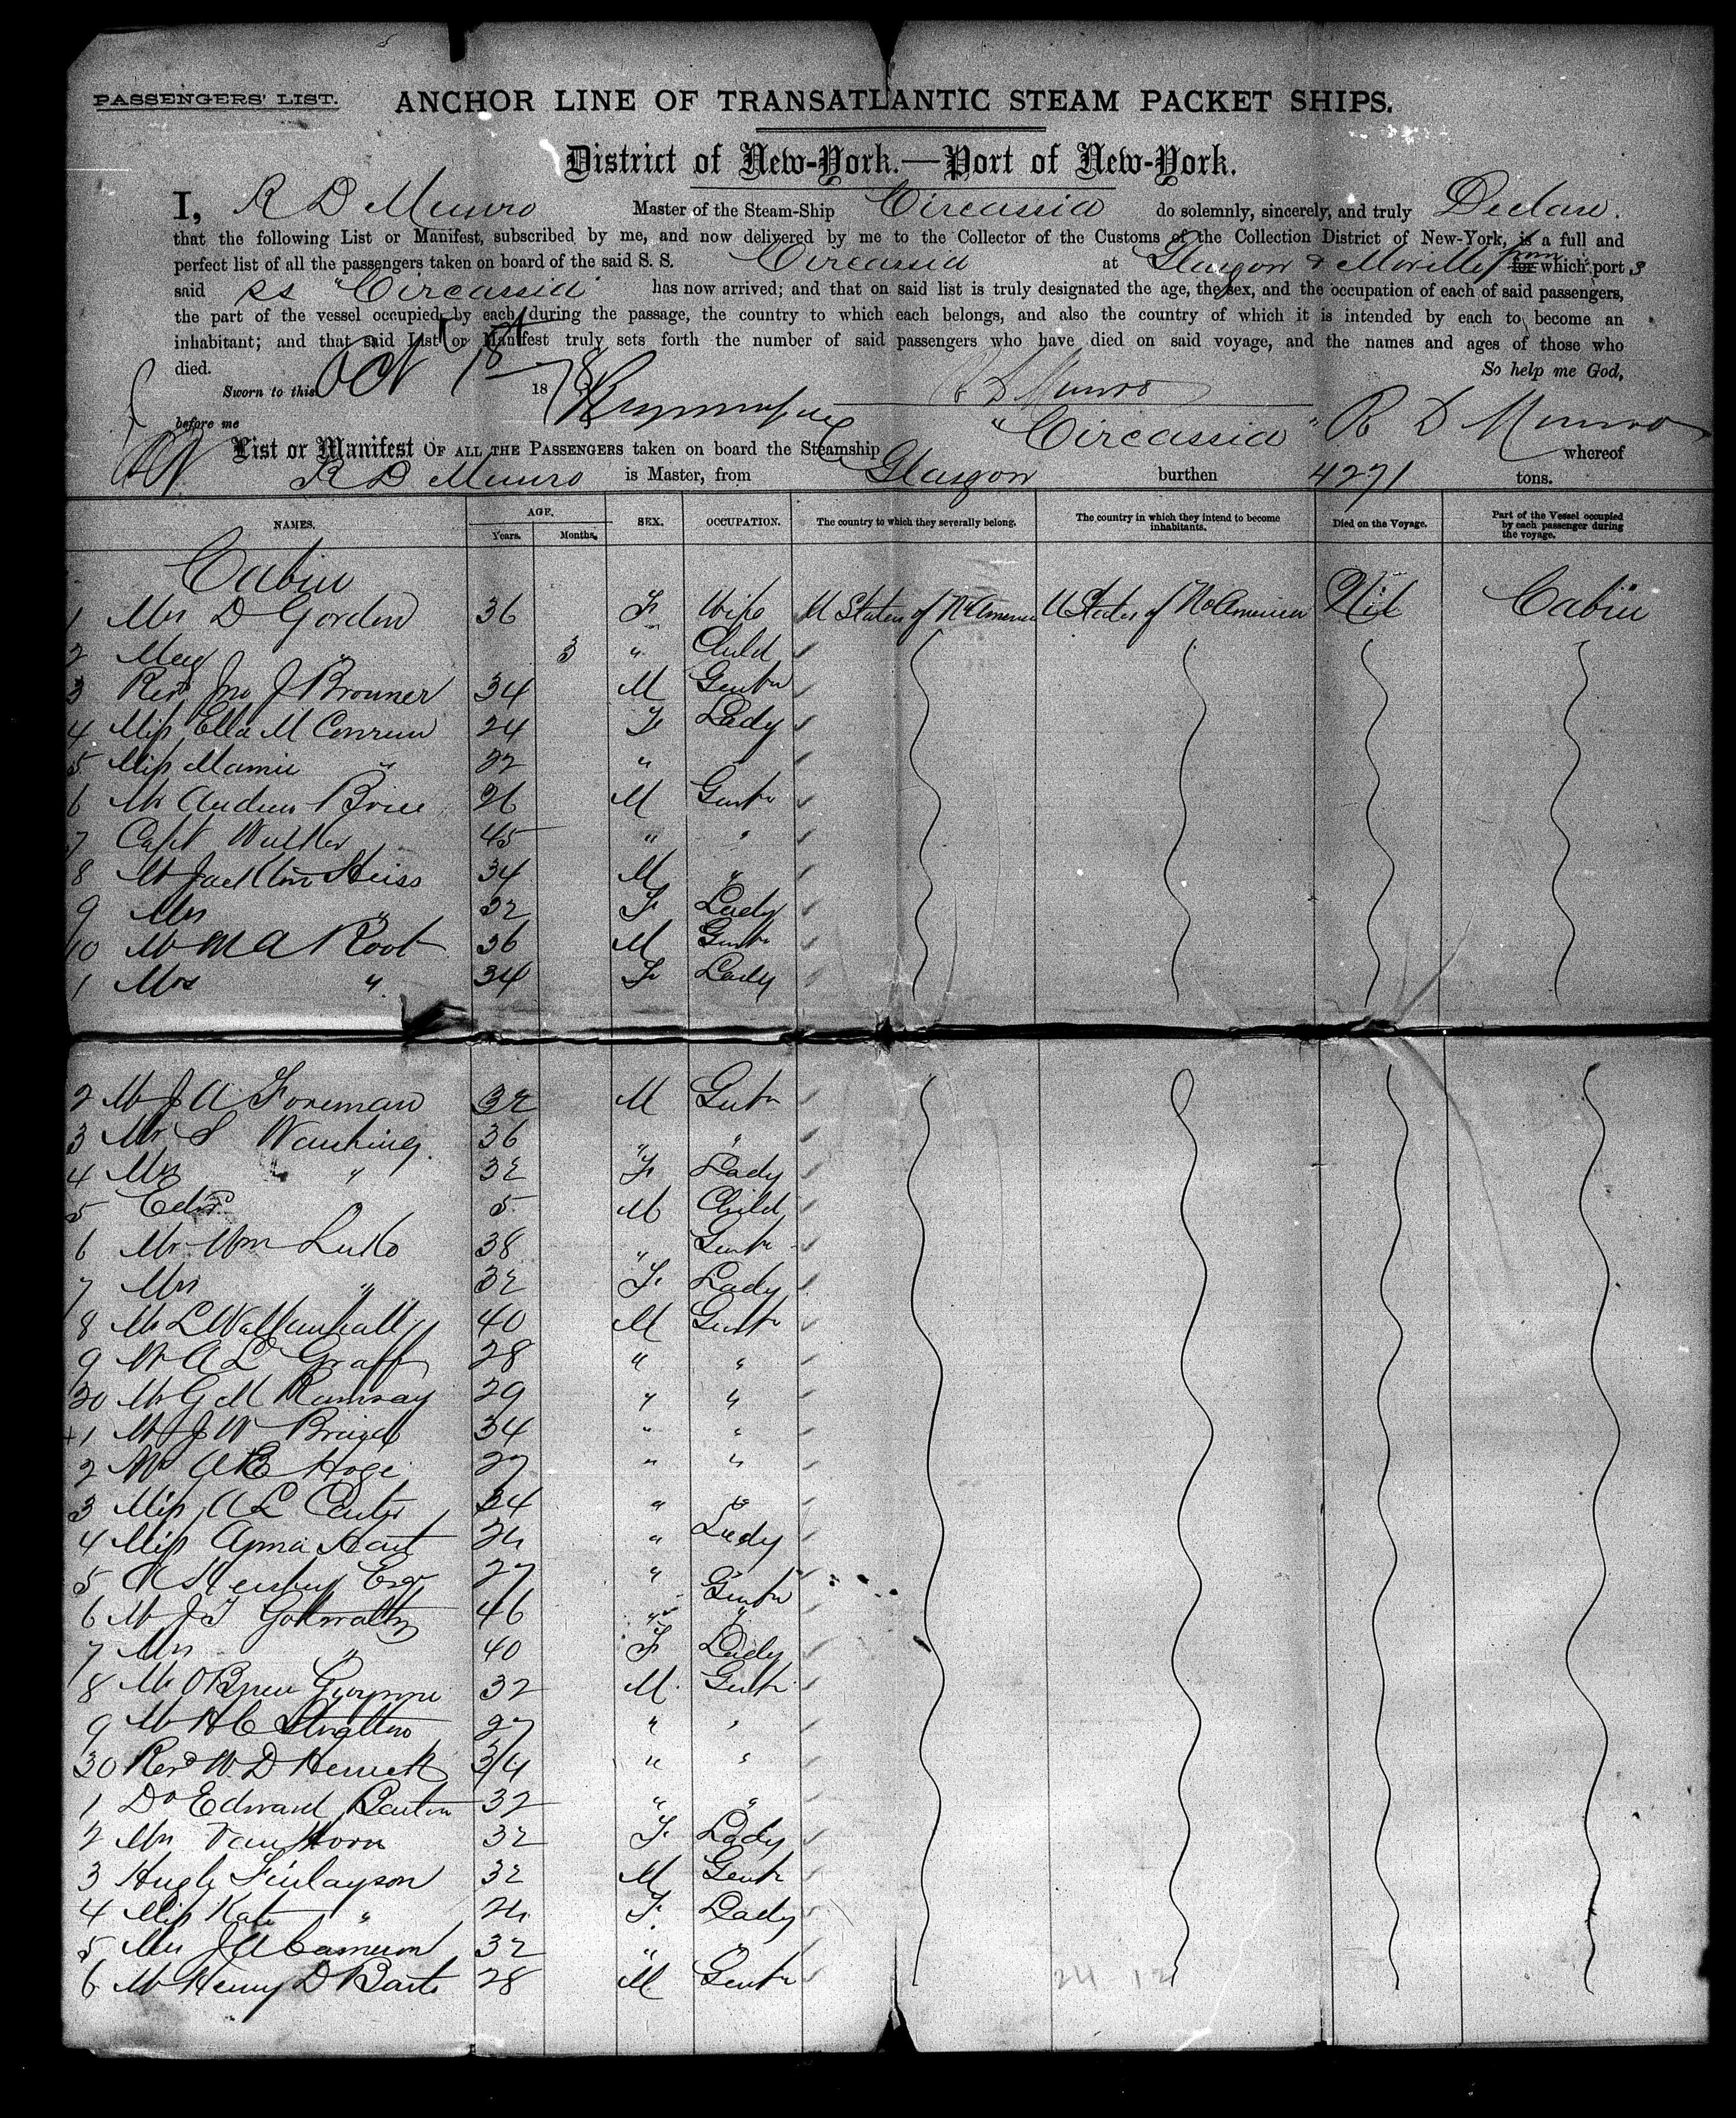 PASSENGERS' LIST.
ANCHOR LINE OF TRANSATLANTIC STEAM PACKET SHIPS.
District of New-York.—Port of New-York.
I, R D Munro Master of the Steam-Ship Circassia do solemnly, sincerely, and truly Declare.
that the following List or Manifest, subscribed by me, and now delivered by me to the Collector of the Customs of the Collection District of New-York, is a full and
perfect list of all the passengers taken on board of the said S. S. Circassia at Glasgow & Moville from for which port s
said ss "Circassia" has now arrived; and that on said list is truly designated the age, the sex, and the occupation of each of said passengers,
the part of the vessel occupied by each during the passage, the country to which each belongs, and also the country of which it is intended by each to become an
inhabitant; and that said List or Manifest truly sets forth the number of said passengers who have died on said voyage, and the names and ages of those who
died. So help me God,
Sworn to this Oct 1st 1878 R D Munro
before me
List or Manifest OF ALL THE PASSENGERS taken on board the Steamship "Circassia" R D Munro whereof
R D Munro is Master, from Glasgow burthen 4271 tons.
NAMES. AGE. Years. Months. SEX. OCCUPATION. The country to which they severally belong. The country in which they intend to become inhabitants. Died on the Voyage. Part of the Vessel occupied by each passenger during the voyage.
Cabin
1 Mrs D Gordon 36 F Wife U States of No America U States of No America Nil Cabin
2 May " 3 " Child
3 Revd Jno J Brouner 34 M Gentn
4 Miss Ella M 24 F Lady
5 Miss Mamie " 22 "
6 Mr Andrew 26 M Gentn
7 Capt 45 " "
8 Mr Heiss 34 M "
9 Mrs " 32 F Lady
10 Mr M A Root 36 M Gentn
1 Mrs " 34 F Lady
2 Mr J A Foreman 32 M Gentn
3 Mr S 36 " "
4 Mrs " 32 F Lady
5 Edwd 5 M Child
6 Mr Wm 38 " Gentn
7 Mrs " 32 F Lady
8 Mr L 40 M Gentn
9 Mr A L Graff 28 " "
20 Mr G M Ramsay 29 " "
1 Mr J W 34 " "
2 Mr A B Hoge 27 " "
3 Miss A L 24 " "
4 Miss Anna Hart 24 " Lady
5 Esqr 27 " Gentn
6 Mr J T Gottwaltz 46 " "
7 Mrs " 40 F Lady
8 Mr Gwynne 32 M Gentn
9 Mr H C 27 " "
30 Revd W. D 34 " "
1 Dr Edward 32 " "
2 Mrs Van Horn 32 F Lady
3 Hugh Finlayson 32 M Gentn
4 Miss Kate " 24 F Lady
5 Mrs J A Cameron 32 " "
6 Mr Henry D 28 M Gentn
24 12